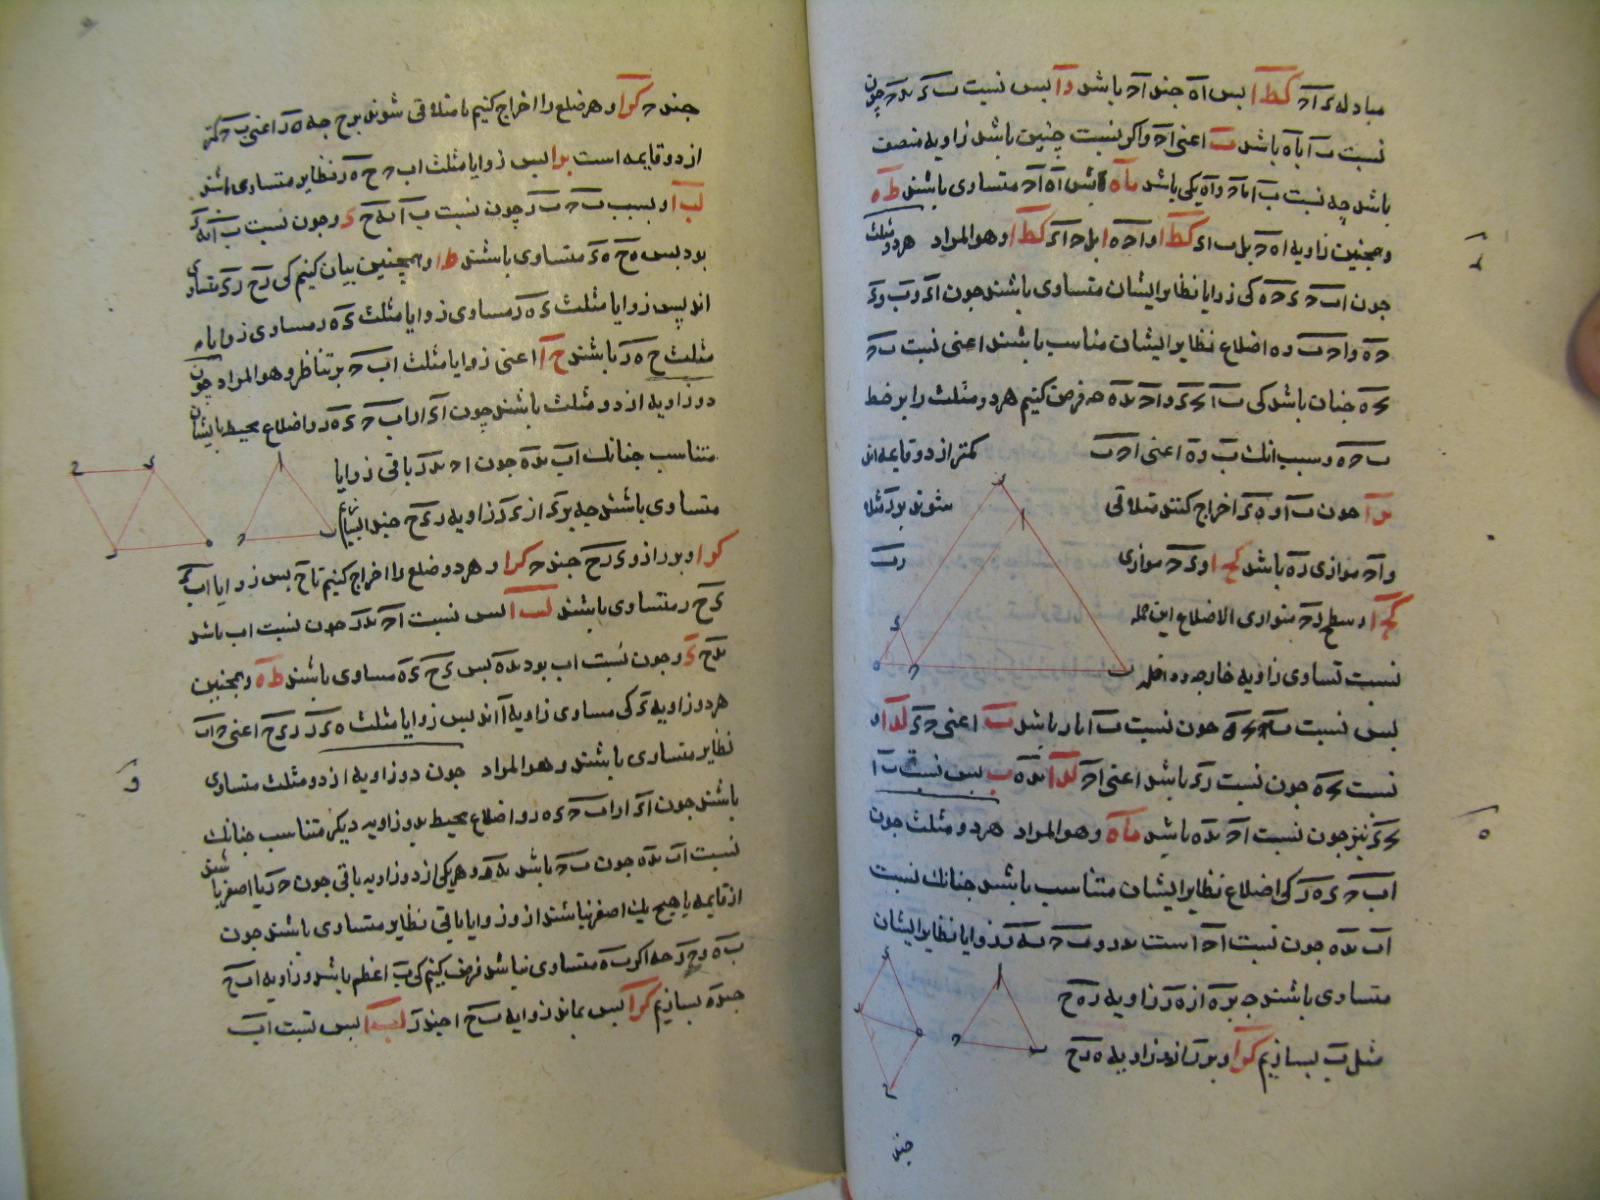 مبادله ءَ اَحَ کط ا بس اَه جند اَحَ باشد و ا بس نسبت ب ءَ بدحَ چون
نسبت ب ا باَه باشد ب اعنی احَ واکر نسبت چنین باشد زاویه منصف
باشد چه نسبت ب ا باحَ واَه یکی باشد ما ه بس اَه اَحَ متساوی باشند ط ه
وهمچنین زاویه اه حَ بل ب اءَ کط ا و احَ ه ا بل حَ اءَ کط ا وهو المراد هر دو مثلث
جون اب حَ ءحَ ه کی زوایا نظایر ایشان متساوی باشند جون اءَ و ب وءَ
حَ ه و احَ ب و ه اضلاع نظایر ایشان متناسب باشند اعنی نسبت ب حَ
حَ ه جنان باشد کی ب ا حَ ءَ و احَ بدَه حه فرض کنیم هر دو مثلث را بر خط
ب حَ ه وسبب انک ب و ه اعنی احَ ب کمتر از دو قایمه اند
بر ا جون ب ا و ه ءَ اخراج کنند متلاقی شوند بر ز مثلا
و احَ موازی ز ه باشد کح ا و ءَ حَ موازی زب
کح ا و سطح زحَ متوازی الاضلاع این جمله
نسبت تساوی زاویه خارجه و داخله
بس نسبت ب حَ حَ ه جون نسبت ب ا باز باشد ب اعنی حَ ءَ لد ا و
نسبت حَ ه جون نسبت زءَ باشد اعنی احَ لد ا بدَه ب بس نسبت ب ا
حَ ءَ نیز جون نسبت احَ بدَه باشد ما ه وهو المراد هر دو مثلث جون
اب حَ ءَ ه ز کی اضلاع نظایر ایشان متناسب باشد جنانک نسبت
اب بدَه جون نسبت احَ است بدز و ب حَ به ز زوایا نظایر ایشان
متساوی باشند چه بر ه از ه ز زاویه ز ه ح
مثل ب بسازیم کو ا و بر ز از ه ز زاویه ه ز ح
جند
جند حَ کو ا و هر ضلع را اخراج کنیم تا متلاقی شوند بر ح جه ه ز اعنی ب حَ کمتر
از دو قایمه است بر ا بس زوایا مثلث اب حَ ح ه ز نظایر متساوی باشند
لب ا و بسبب ب حَ ب ز جون نسبت ب ا به ح ءَ و جون نسبت ب ا به ءَ
بود بس ه ح ه ءَ متساوی باشند ط ا وهمچنین بیان کنیم کی ز ح زءَ متساوی
اند بس زوایا مثلث ءَ ه ز مساوی زوایا مثلث ءَ ه ز مساوی زوایاء
مثلث ح ه ز باشند ح ا اعنی زوایا مثلث اب حَ بر تناظر وهو المراد جون
دو زاویه از دو مثلث باشند جون اءَ از اب حَ ءَ ه ز و اضلاع محیط بایشان
متناسب جنانک اب بدَه جون احَ بدز باقی زوایا
متساوی باشند چه بر ءَ از ءَ ز زاویه ز ءَ ح جند ا بسازیم
کو ا و بر ز از زءَ ءَ ز ح جند حَ کو ا و هر دو ضلع را اخراج کنیم تا ح بس زوایا اب حَ
ءَ ح ز متساوی باشند لب ا بس نسبت احَ بدز جون نسبت اب باشد
بدح ءَ و جون نسبت اب بود بدَه بس ءَ ح ءَ ه مساوی باشند ط ه وهمچنین
هر دو زاویه ءَ کی مساوی زاویه ا اند بس زوایا مثلث ه ءَ ز زءَ ح اعنی حَ اب
نظایر متساوی باشند وهو المراد جون دو زاویه از دو مثلث متساوی
باشند جون اءَ از اب حَ ءَ ه ز و اضلاع محیط بدو زاویه دیکر متناسب جنانک
نسبت اب بدَه جون ب حَ باشد به ز و هر یکی از دو زاویه باقی جون حَ ز یا اصغر باشند
از قایمه یا هیچ یک اصغر نباشند از و زوایا باقی نظایر متساوی باشند جون
ب ه و حَ ز حه اکر ب ه متساوی نباشد فرض کنیم کی ب اعظم باشد و زاویه اب ح
جند ه بسازیم کو ا بس بماند زاویه ب ح ا جند ز لب ا بس نسبت اب